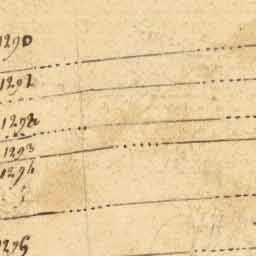 1290
1291
1292
1293
1294